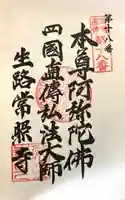 第十八番
本尊阿弥陀佛
四國直傳弘法大師
生路常照寺